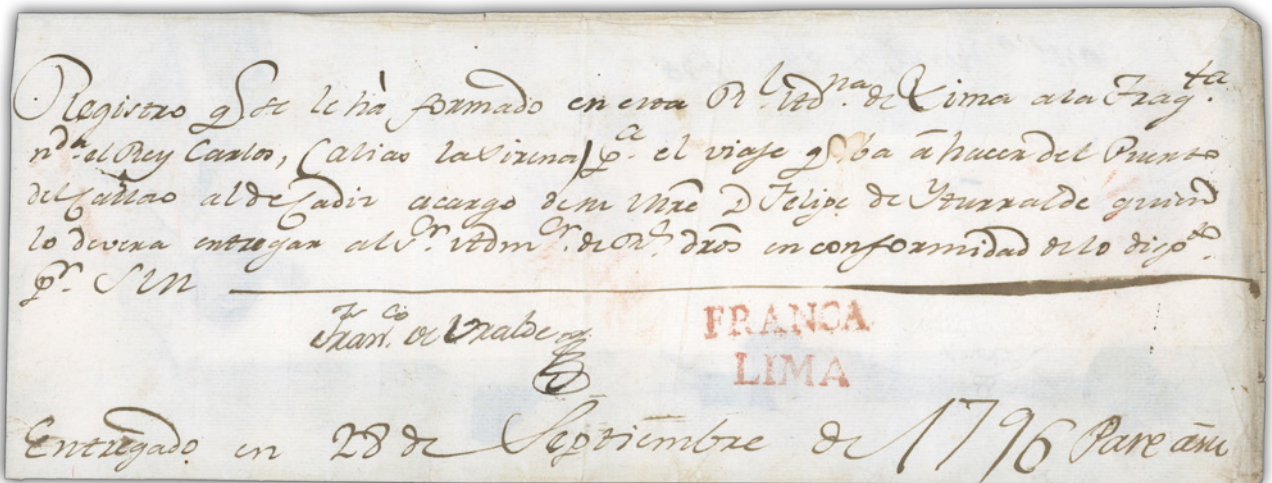 Registro qe. se le há formado en esta Rl. Adna. de Lima a la Fragta.
nda. el Rey Carlos, (alias la Sirena) pa. el viaje qe. ba á hacer del Puerto
del Callao al de Cadiz a cargo de su Mre. Dn Felipe de Yturralde quien
lo devera entregar al Sr. Admor. de Rs. dros en conformidad de lo dispto.
pr. S.M.
Franco. de Uralde
FRANCA
LIMA
Entregado en 28 de Septiembre de 1796